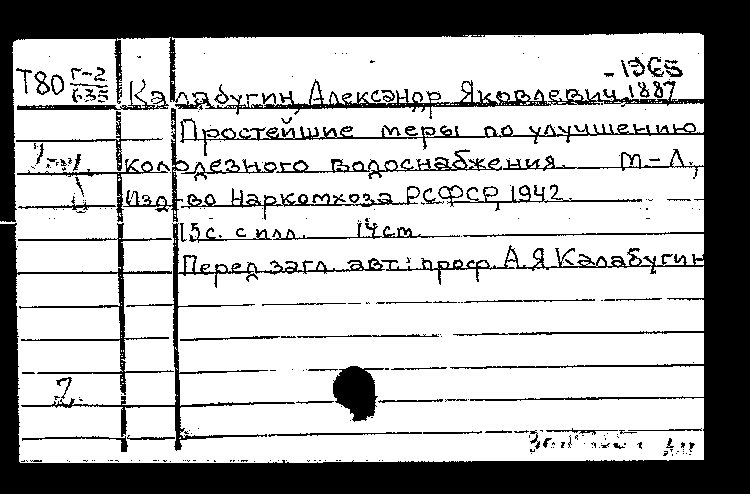 -1965
Т80 Г-2/635 Калабугин, Александр Яковлевич, 1887
Простейшие меры по улучшению
колодезного водоснабжения. М.-Л.,
Изд-во Наркомхоза РСФСР, 1942.
15с. с илл. 14 ст.
Перед загл. авт.: проф. А.Я Калабугин
2.